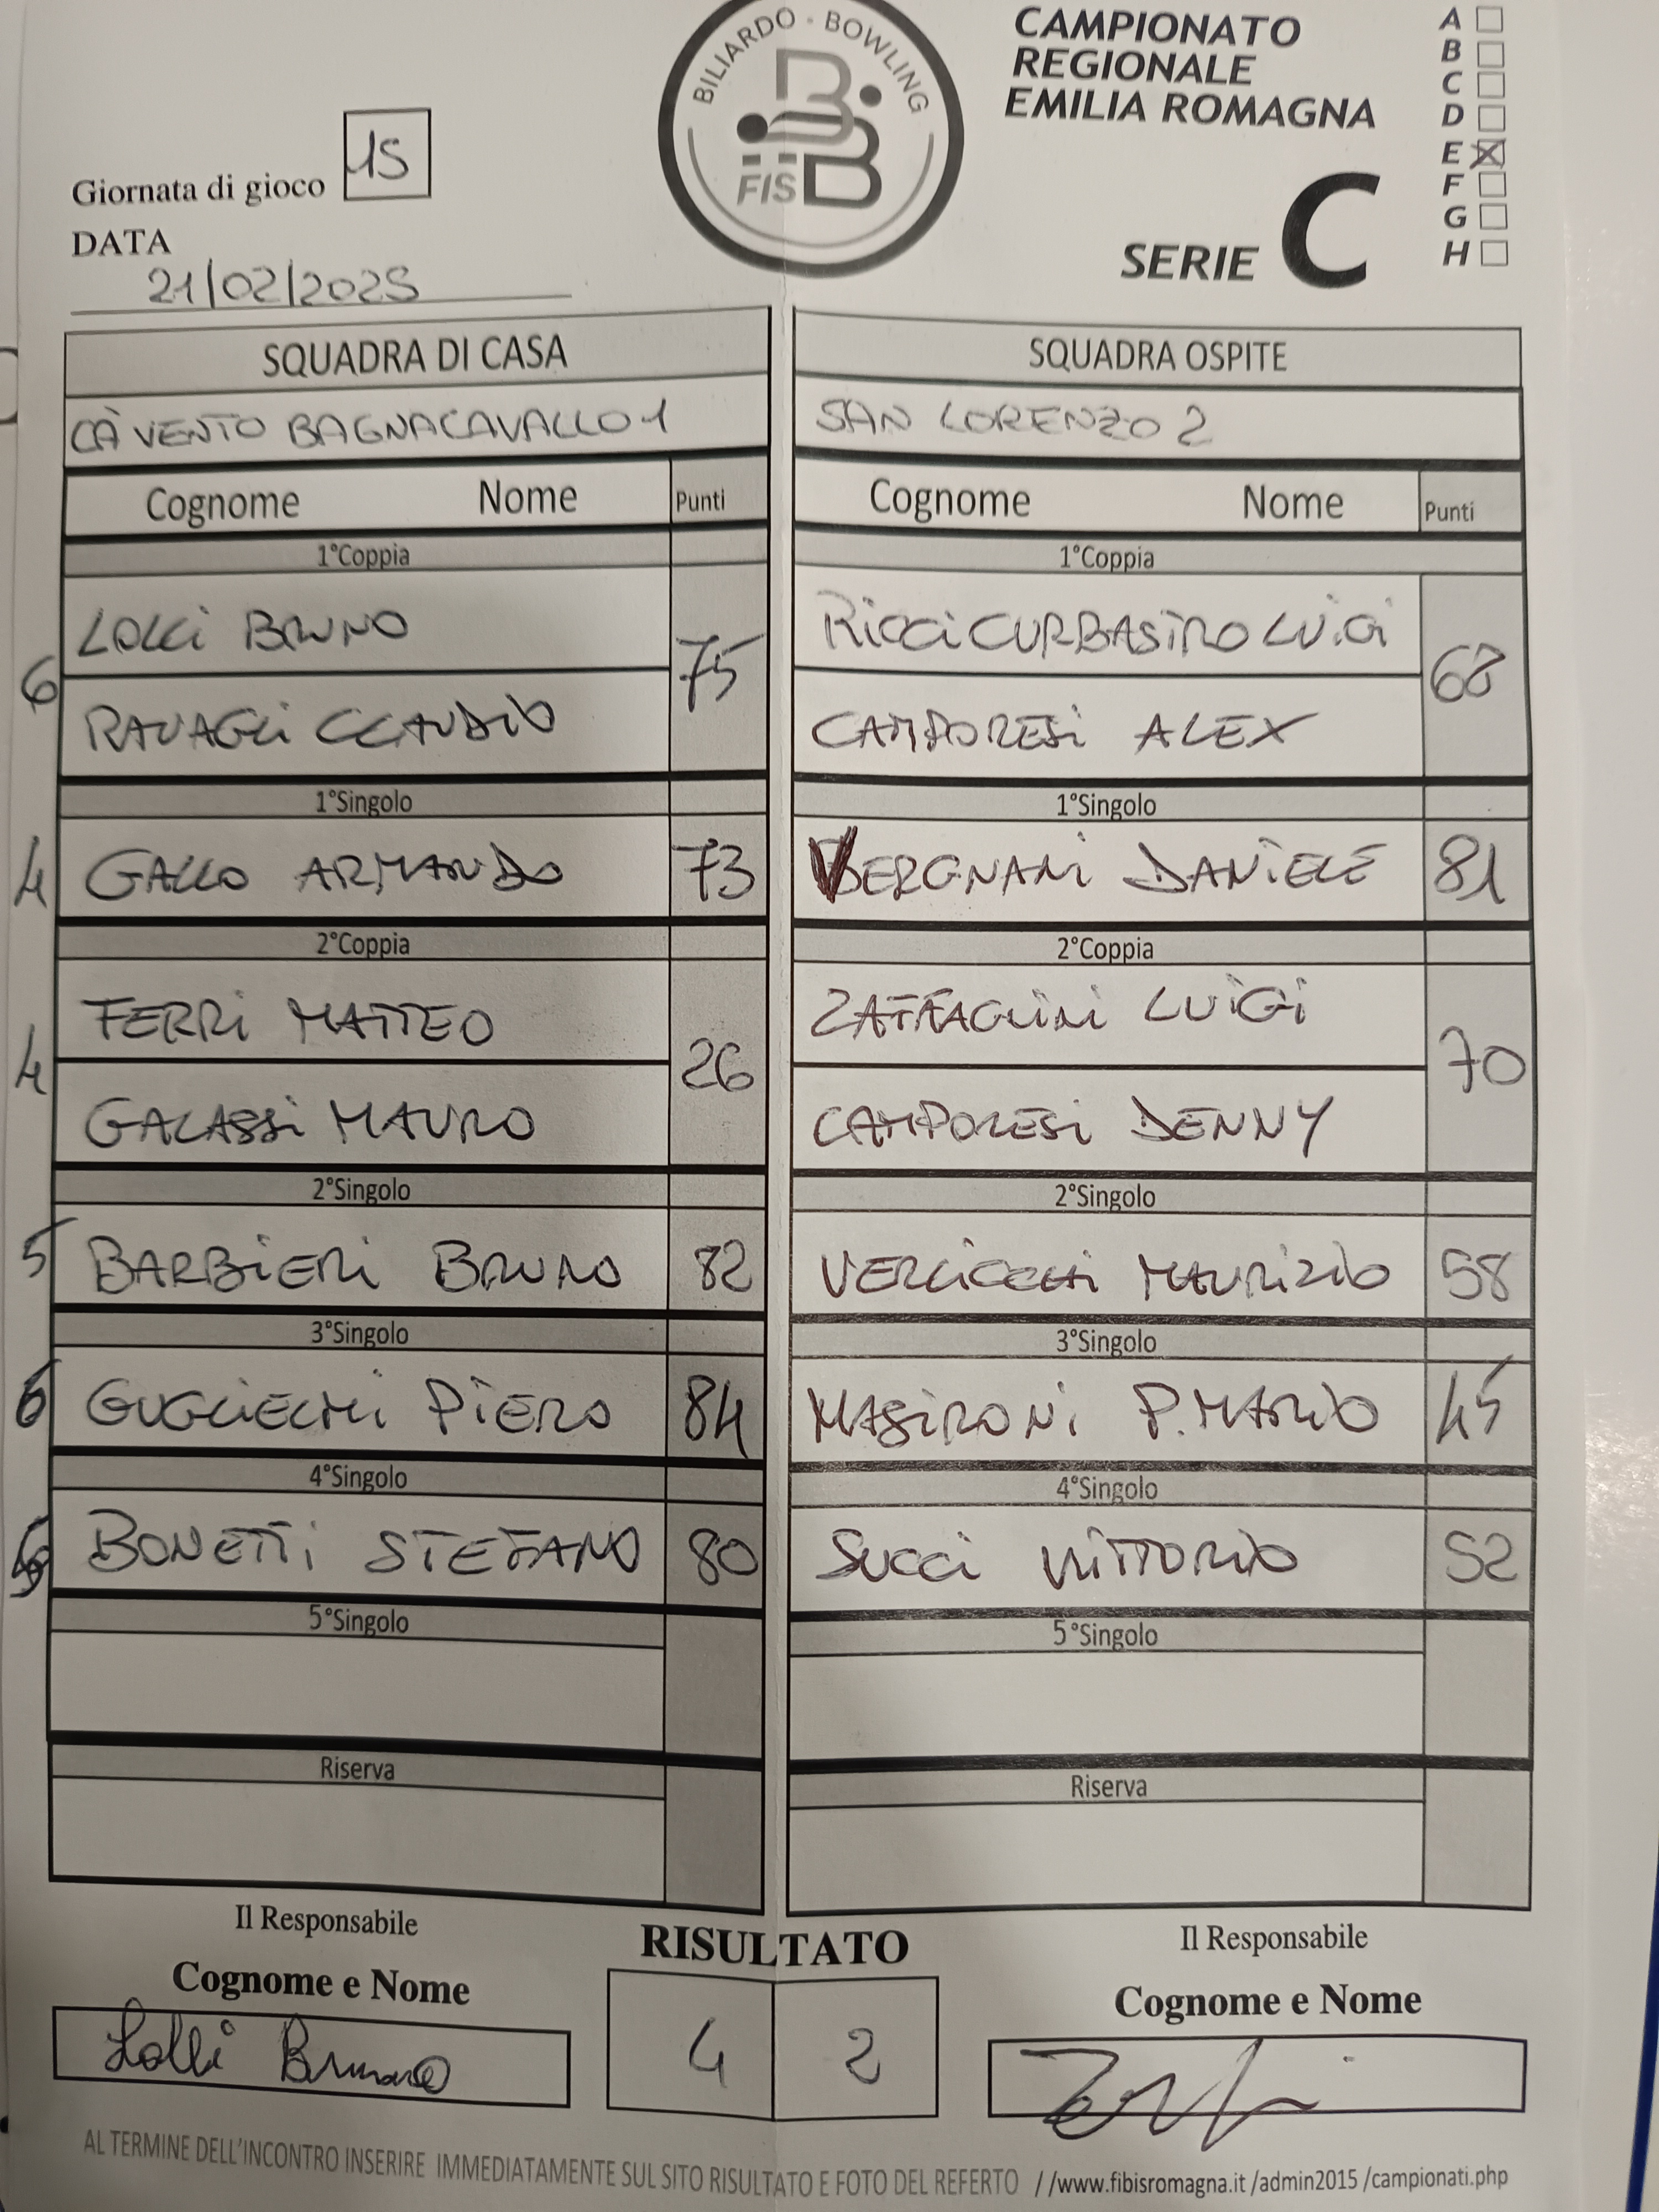 BILIARDO - BOWLING
FISBB
CAMPIONATO
REGIONALE
EMILIA ROMAGNA
SERIE C
A
B
C
D
E X
F
G
H
Giornata di gioco 15
DATA
21/02/2025
SQUADRA DI CASA
CÀ VENTO BAGNACAVALLO 1
Cognome Nome Punti
1°Coppia
LOLLI BRUNO
6 75
RAVAGLI CLAUDIO
1°Singolo
4 GALLO ARMANDO 73
2°Coppia
FERRI MATTEO
4 26
GALASSI MAURO
2°Singolo
5 BARBIERI BRUNO 82
3°Singolo
6 GUGLIELMI PIERO 84
4°Singolo
BONETTI STEFANO 80
5°Singolo
Riserva
SQUADRA OSPITE
SAN LORENZO 2
Cognome Nome Punti
1°Coppia
RICCI CURBASTRO LUIGI
68
CAMPORESI ALEX
1°Singolo
VERGNANI DANIELE 81
2°Coppia
ZAFFAGLINI LUIGI
70
CAMPORESI DENNY
2°Singolo
VERLICCHI MAURIZIO 58
3°Singolo
MASIRONI P.MARIO 45
4°Singolo
SUCCI VITTORIO 52
5°Singolo
Riserva
Il Responsabile
Cognome e Nome
Lolli Bruno
RISULTATO
4 2
Il Responsabile
Cognome e Nome
AL TERMINE DELL'INCONTRO INSERIRE IMMEDIATAMENTE SUL SITO RISULTATO E FOTO DEL REFERTO //www.fibisromagna.it /admin2015 /campionati.php